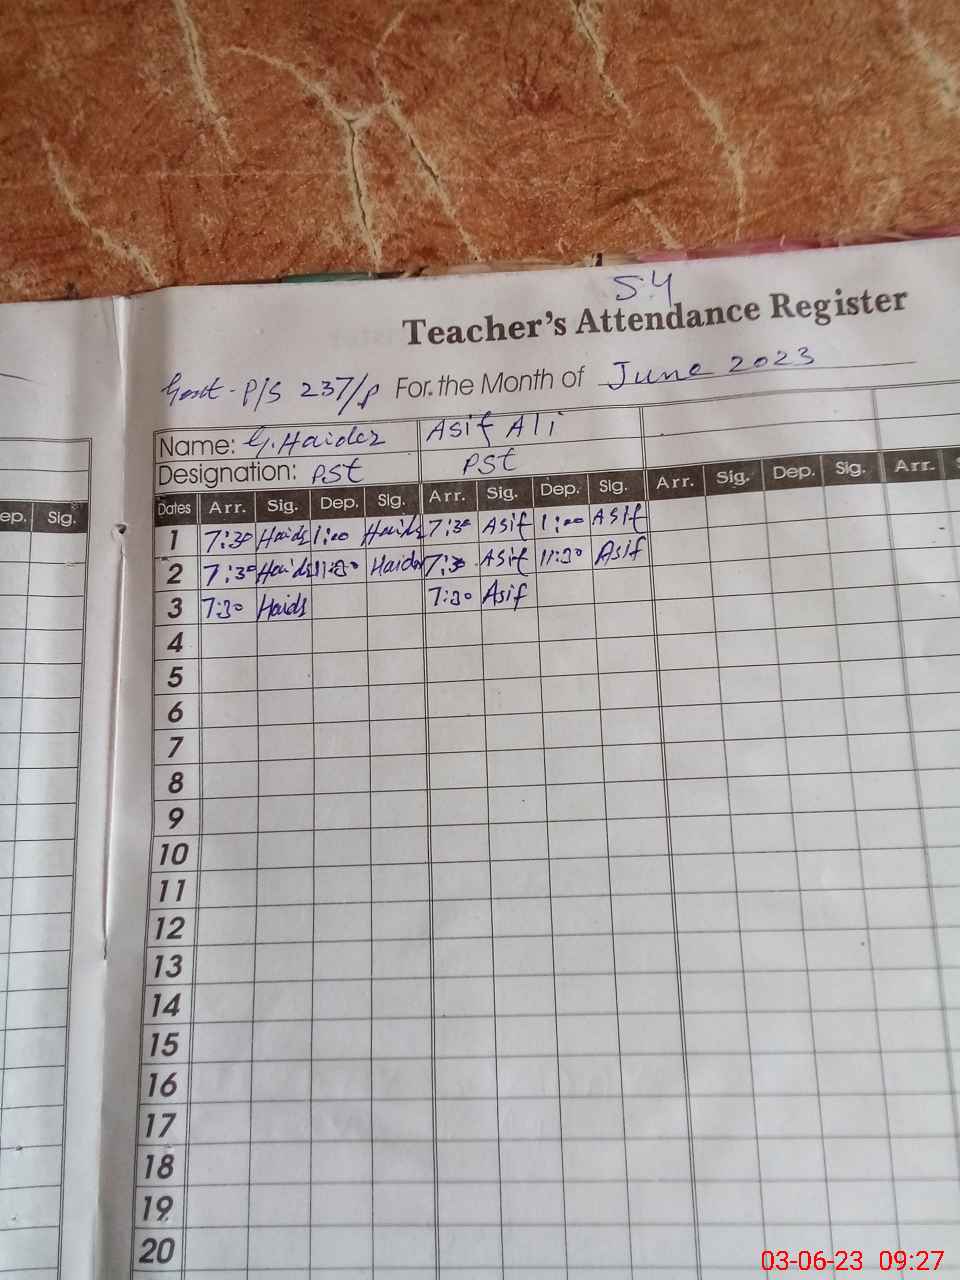 54
Teacher's Attendance Register
Govt. P/S 237/P For the Month of June 2023
Name: G. Haider Asif Ali
Designation: PST PST
ep. Sig. Dates Arr. Sig. Dep. Sig. Arr. Sig. Dep. Sig. Arr. Sig. Dep. Sig. Arr.
1 7:30 Haids 1:00 Haids 7:30 Asif 1:00 Asif
2 7:30 Haids 11:30 Haider 7:30 Asif 11:30 Asif
3 7:30 Haids 7:30 Asif
4
5
6
7
8
9
10
11
12
13
14
15
16
17
18
19
20
03-06-23 09:27